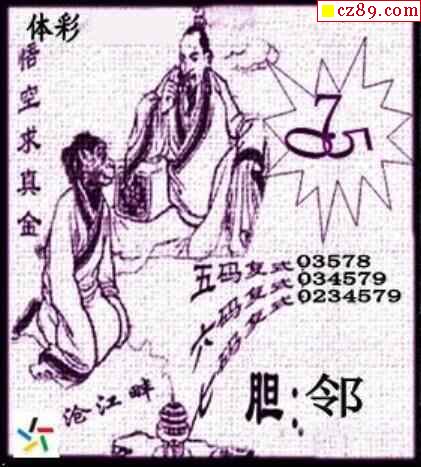 cz89.com
体彩
悟空求真金
075
五码复式03578
六码复式034579
七码复式0234579
胆:邻
沧江畔